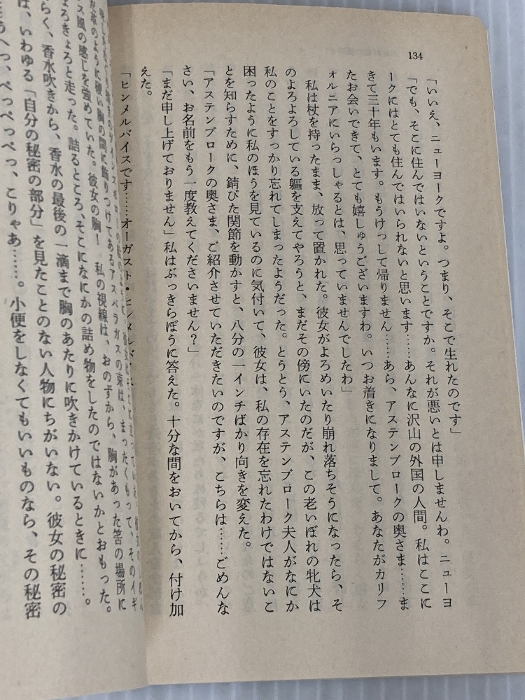 134
「いいえ、ニューヨークですよ。つまり、そこで生れたのです」
「でも、そこに住んではいないということですか。それが悪いとは申しませんわ。ニューヨ
ークにはとても住んではいられないと思います……あんなに沢山の外国の人間。私はここに
きて三十年もいます。もうけっして帰りません……あら、アステンブロークの奥さま……ま
たお会いできて、とても嬉しゅうございますわ。いつお着きになりまして。あなたがカリフ
ォルニアにいらっしゃるとは、思っていませんでしたわ」
私は杖を持ったまま、放って置かれた。彼女がよろめいたり崩れ落ちそうになったら、そ
のよろよろしている軀を支えてやろうと、まだその傍にいたのだが、この老いぼれの牝犬は
私のことをすっかり忘れてしまったようだった。とうとう、アステンブローク夫人がなにか
困ったように私のほうを見ているのに気付いて、彼女は、私の存在を忘れたわけではないこ
とを知らすために、錆びた関節を動かすと、八分の一インチばかり向きを変えた。
「アステンブロークの奥さま、ご紹介させていただきたいのですが、こちらは……ごめんな
さい、お名前をもう一度教えてくださいません?」
「まだ申し上げておりません」私はぶっきらぼうに答えた。十分な間をおいてから、付け加
えた。
「ヒンメルバイスです……オーガスト・ヒンメル
胸があった筈の場所に
私の視線は、おのずから、
ス風の感じを強めていた。彼女の胸
ょろきょろと走った。詰るところ、そこになにかの詰め物をしたのではないかとおもった。
らく、香水吹きから、香水の最後の一滴まで胸のあたりに吹きかけているときに……。
、いわゆる「自分の秘密の部分」を見たことのない人物にちがいない。彼女の秘密の
うへっ、ぺっぺっぺっ、こりゃあ……。小便をしなくてもいいものなら、その秘密